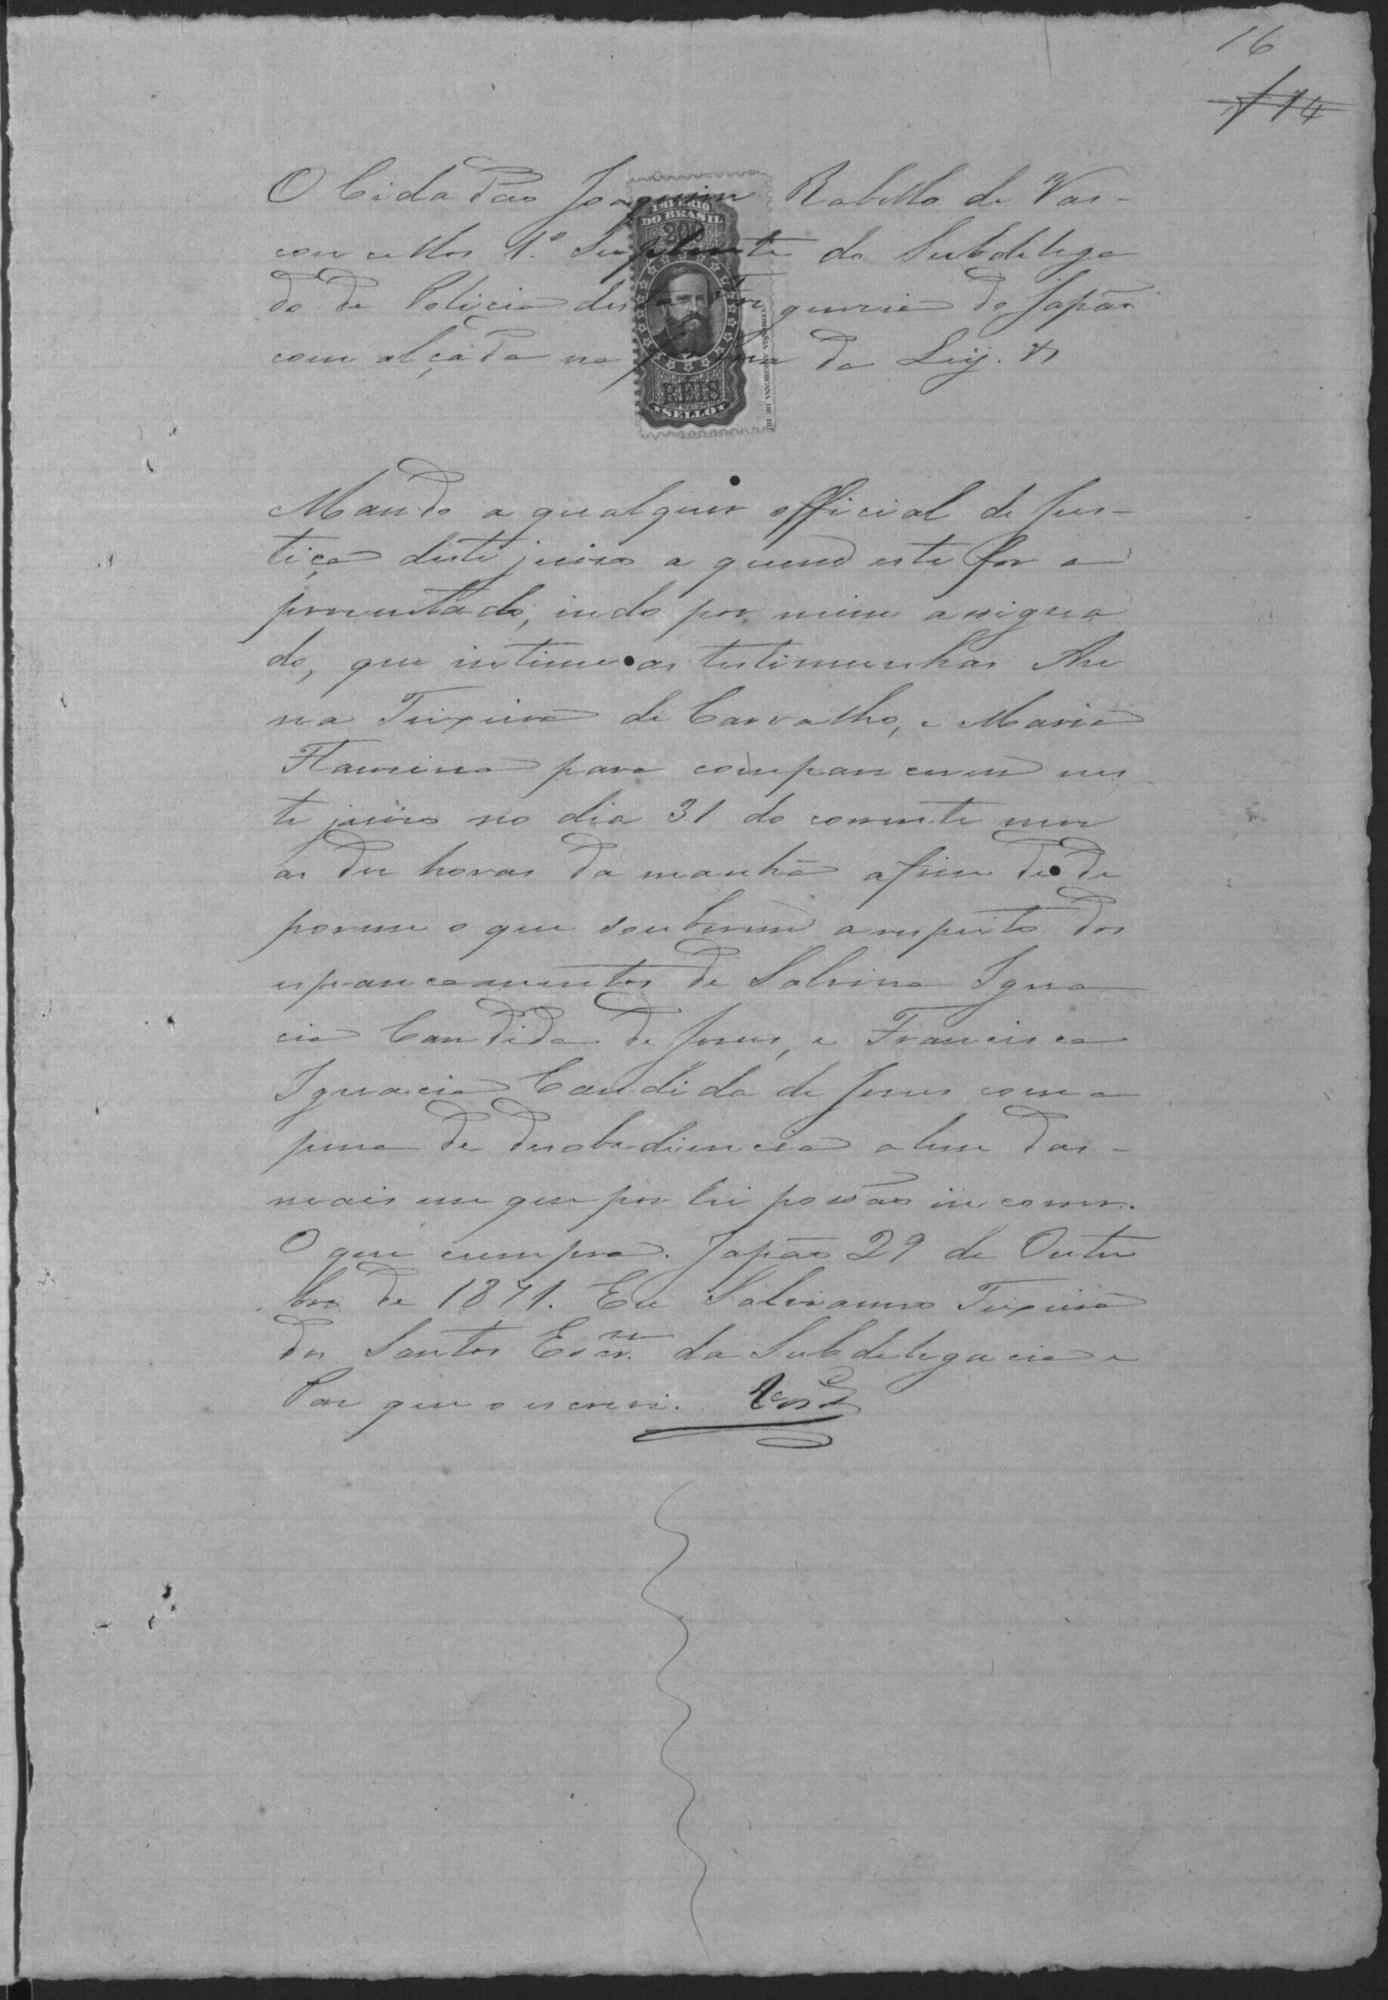 16
14
O Cidadão Joaquim Rabello de Vas-
concellos 1º Suplente do Subdelega
do de Policia desta Freguezia do Japão
com alçada na forma da Ley. &
IMPERIO
DO BRASIL
200
REIS
SELLO
Mando a qualquer official de Jus-
tiça deste juizo a quem este for a
prezentado, indo por mim assigna
do, que intime as testimunhas An
na Teixeira de Carvalho, e Maria
para comparecerem nes
te juizo no dia 31 do corrente mez
as dez horas da manhã afim de de
porem o que souberem a respeito dos
espancamentos de Sabina Igna
cia Candida de Jesus, e Francisca
Ignacia Candida de Jesus com a
pena de desobediencia alem das
mais em que por lei possão incorrer.
O que cumpra. Japão 29 de Outu
bro de 1871. Eu Teixeira
dos Santos Escr.m da Subdelegacia e
Paz que o escrevi.